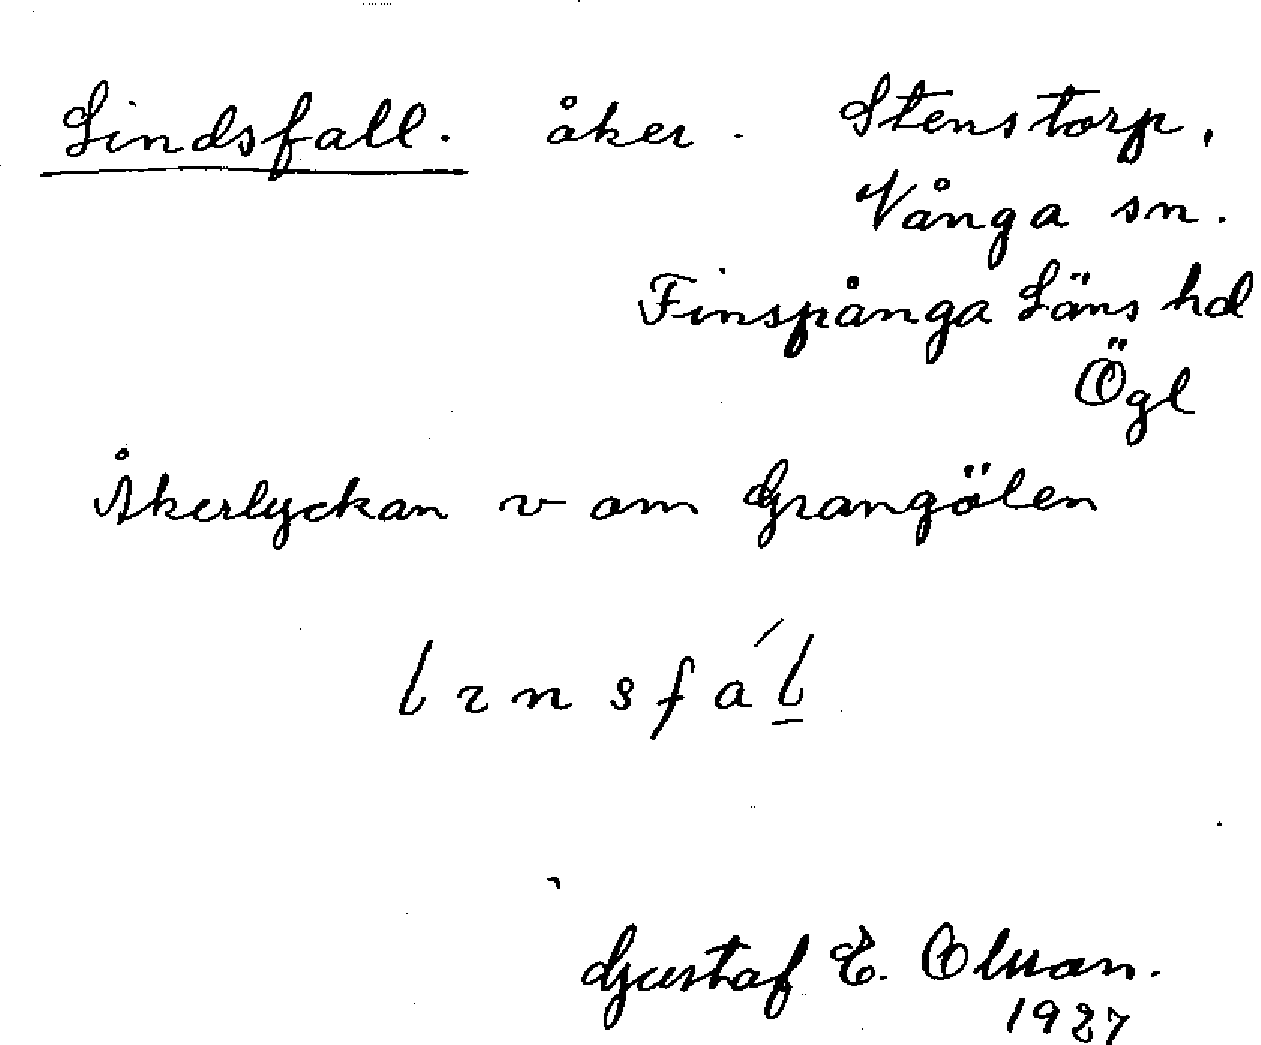 Lindsfall. åker. Stenstorp,
Vånga sn.
Finspånga Läns hd
Ögl
Åkerlyckan v om Grangölen
lɪnsfál
Gustaf E. Olsson.
1927